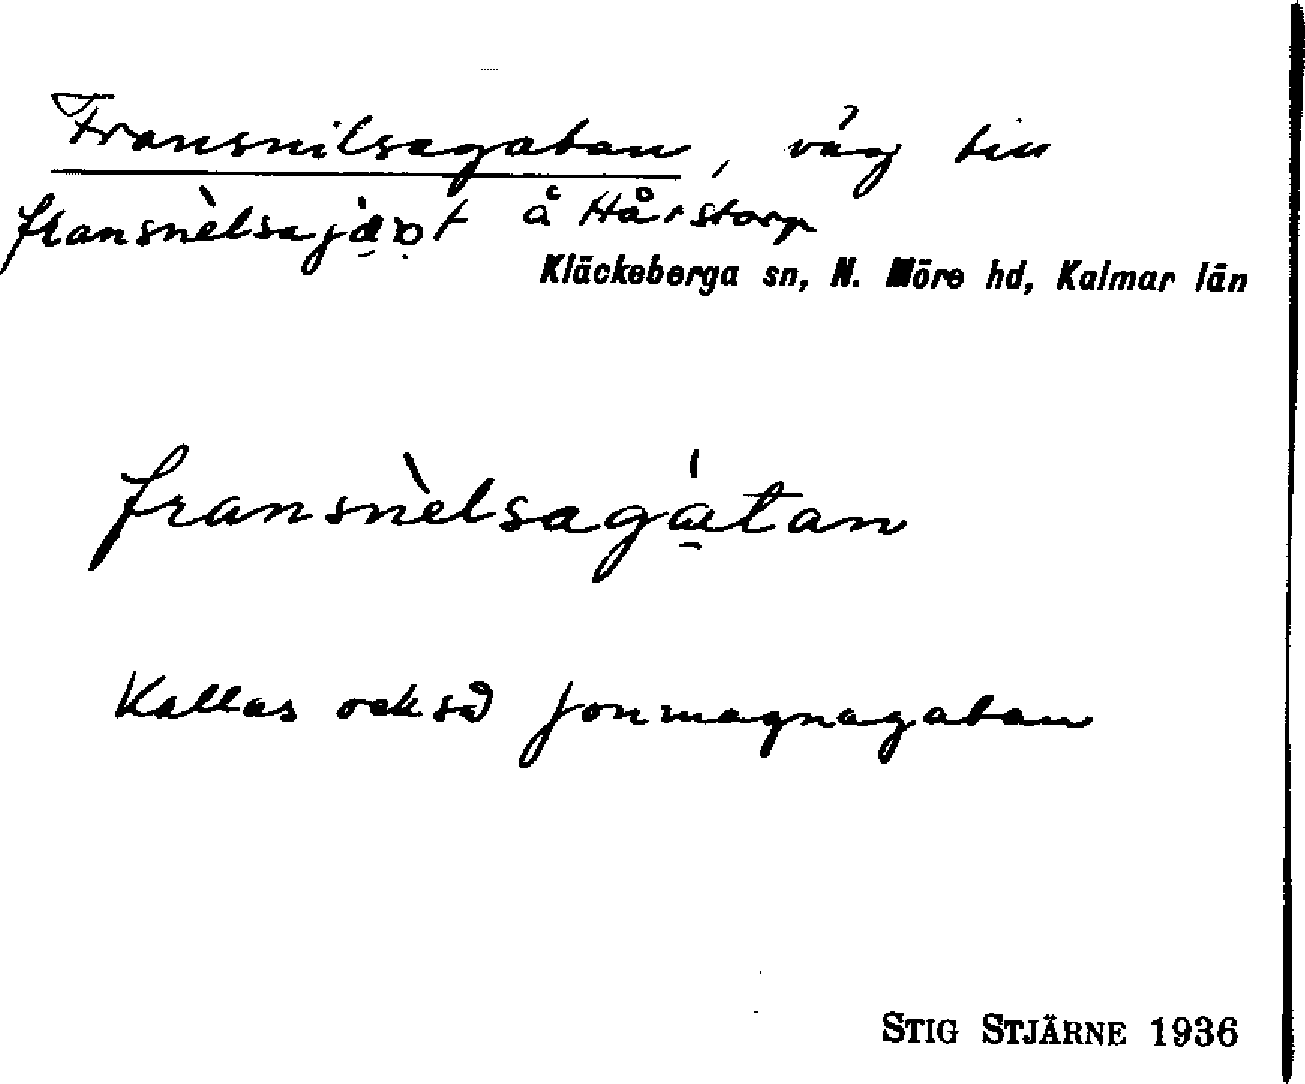 Fransnilsagatan, väg till
fransnèlsajæ̀ṇṭ å Hårstorp
Kläckeberga sn, N. Möre hd, Kalmar län
fransnèlsagátan
Kallas också Jonmagnagatan
STIG STJÄRNE 1936